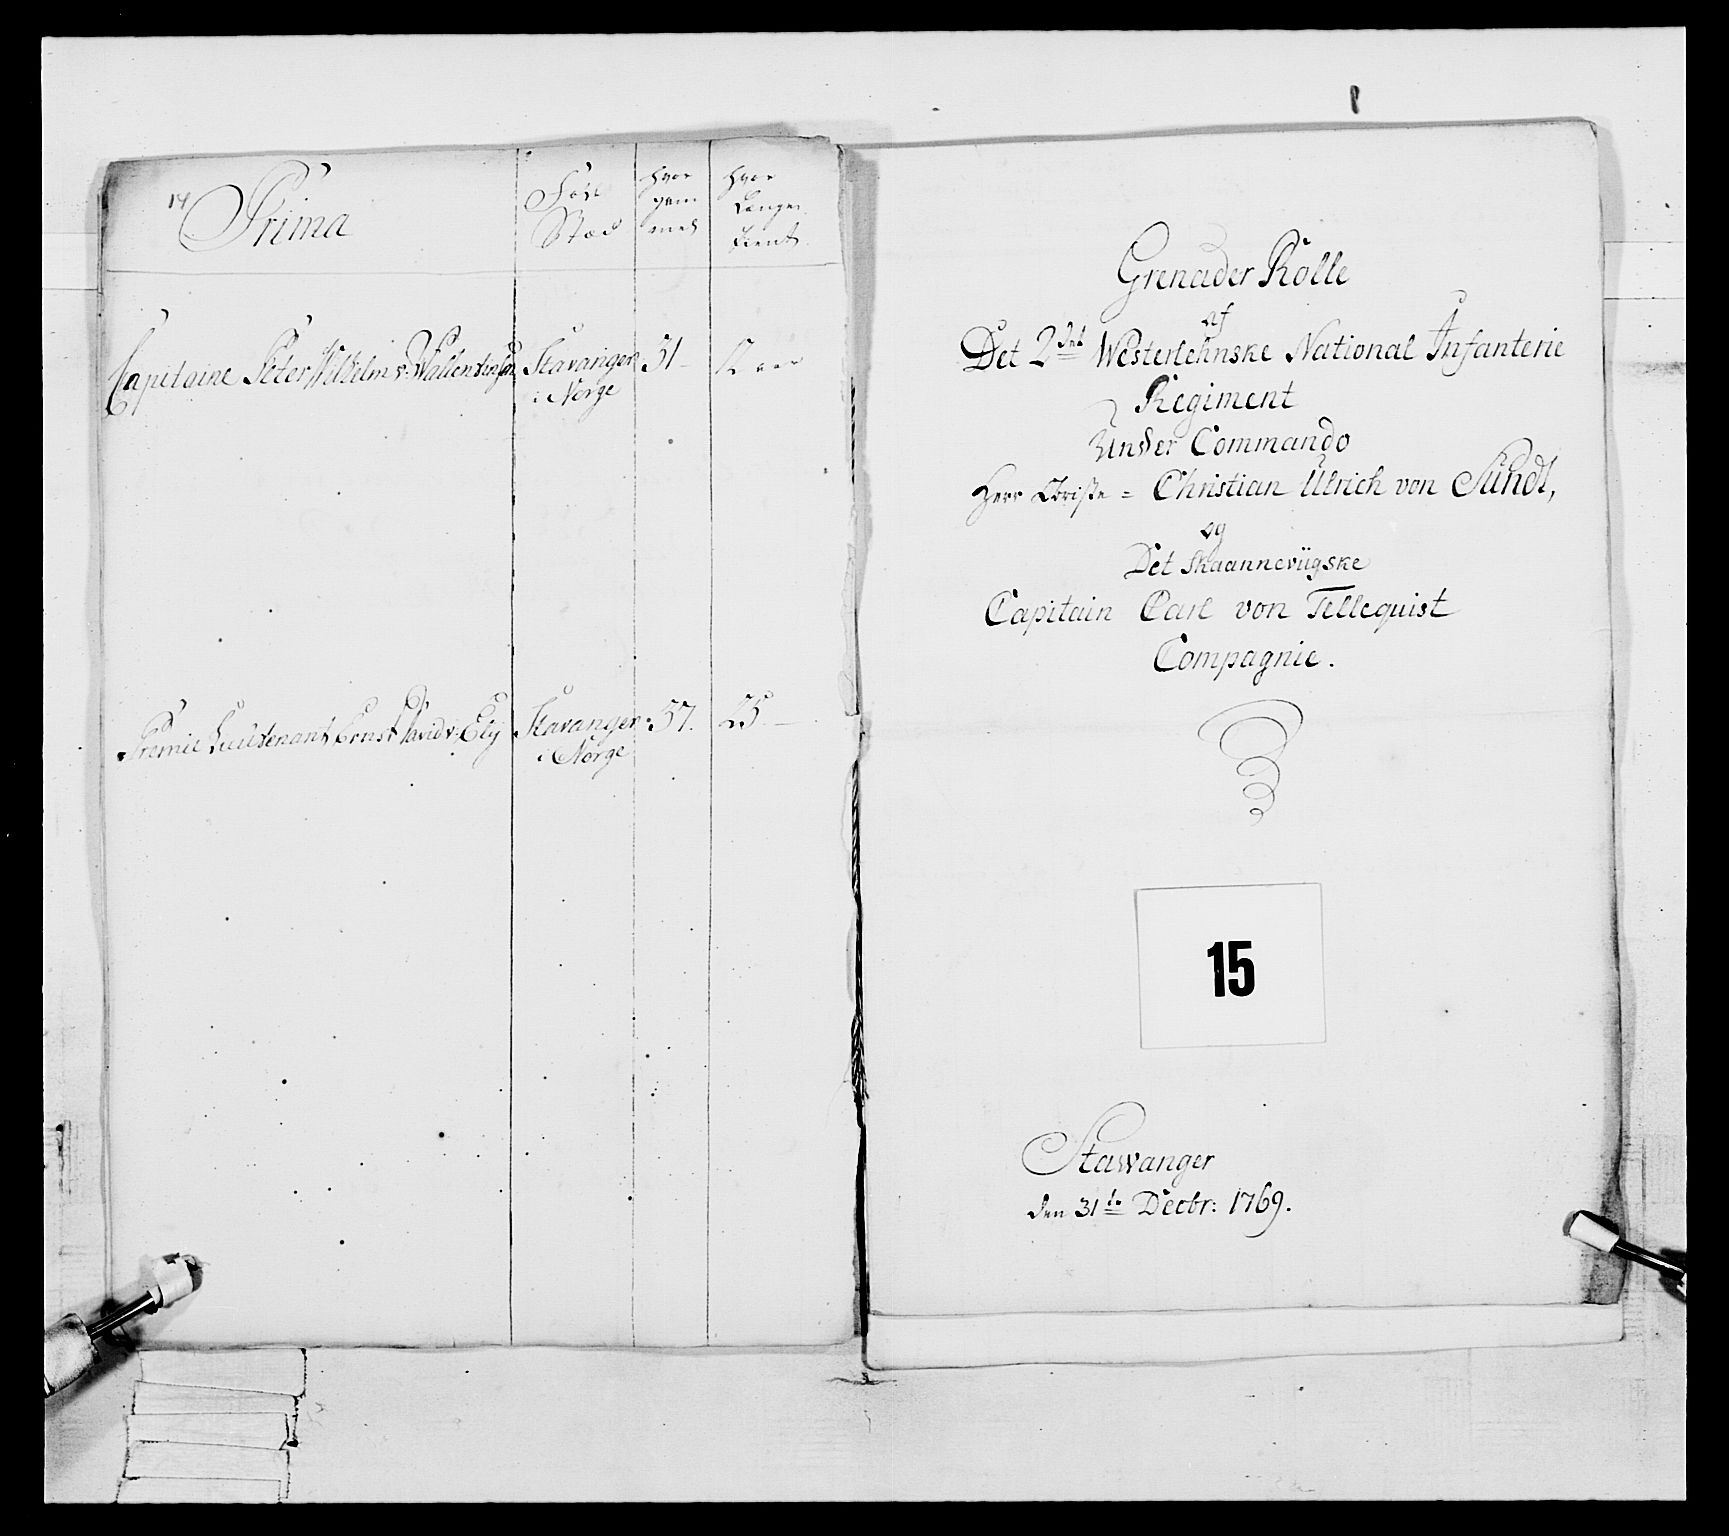 14 Prima
Föd
Stæd
hvor
gam
mel
hvor
Længe
tient
Capitaine Peter Wilhelm v: Wallentinsen
Stavanger
i Norge
31
12 aar
Premie Lieutenant Ernst David v: Ely
Stavanger
i Norge
37.
25
Grenader Rolle
af
Det 2det Westerlehnske National Infanterie
Regiment
Under Commando
Herr Obriste = Christian Ulrich von Sundt,
og
Det Skaanneviigske
Capitain Carl von Tellequist
Compagnie.
15
Stawanger
den 31te Decbr: 1769.